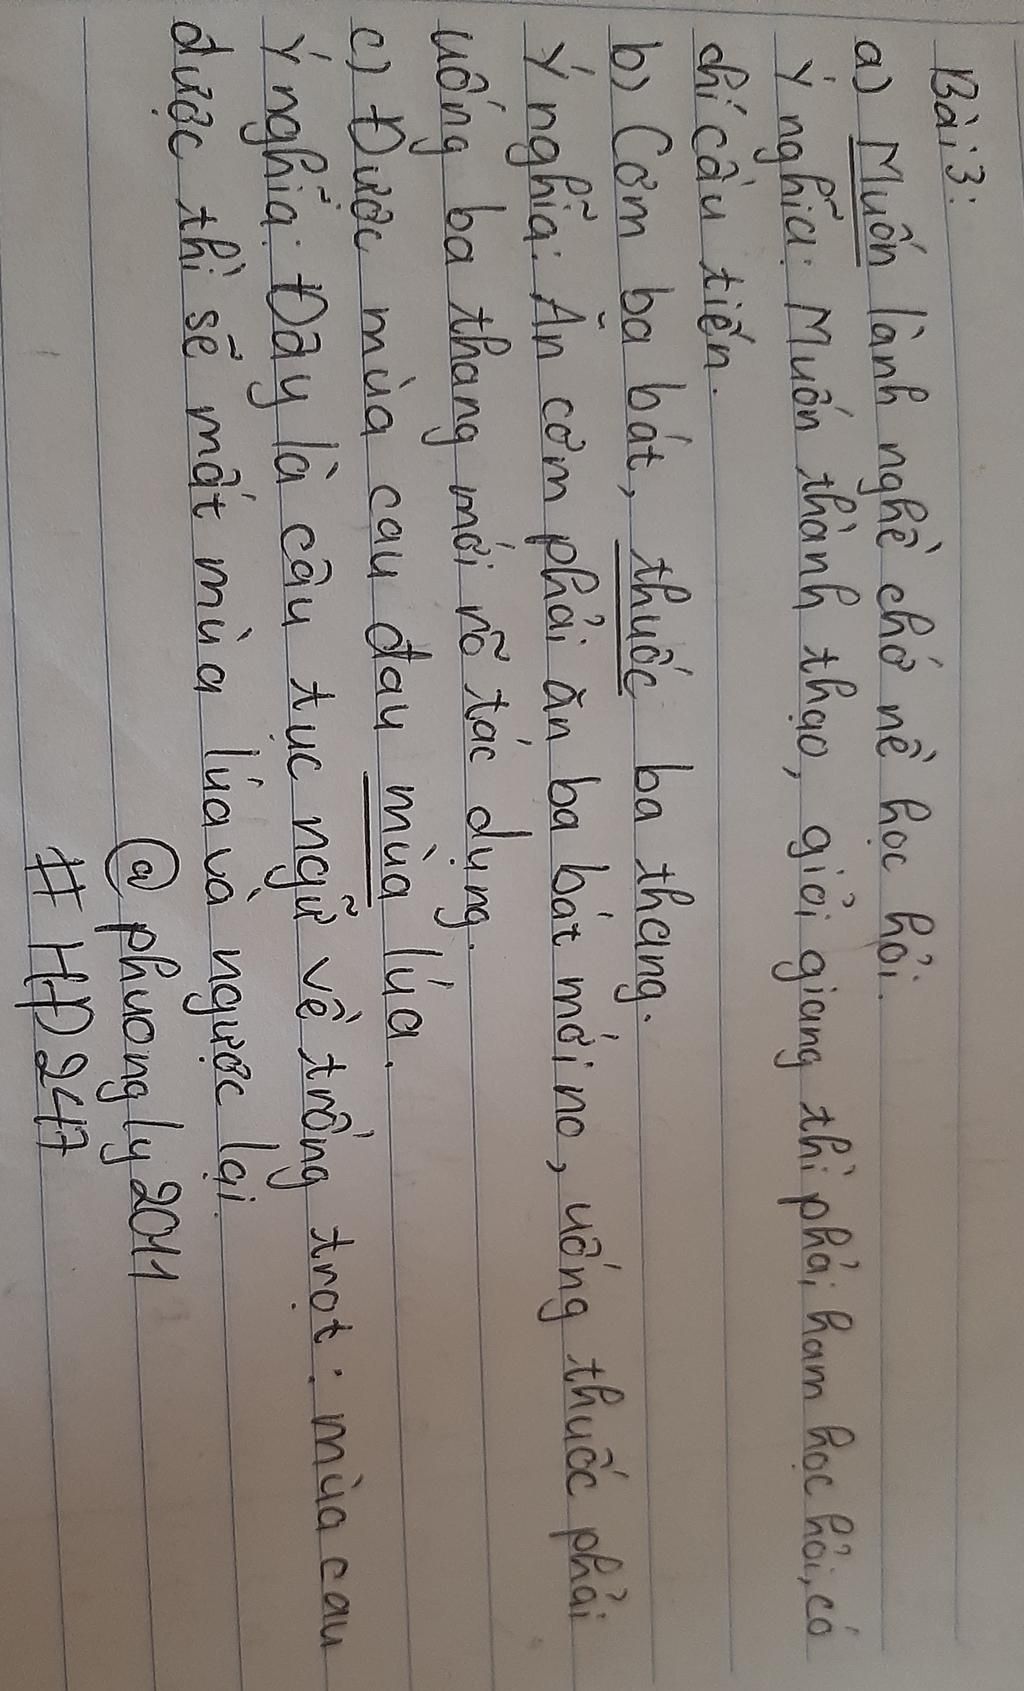 Bài 3:
a) Muốn lành nghề chớ nề học hỏi.
Ý nghĩa: Muốn thành thạo, giỏi giang thì phải ham học hỏi, có
chí cầu tiến.
b) Cơm ba bát, thuốc ba thang.
Ý nghĩa: Ăn cơm phải ăn ba bát mới no, uống thuốc phải
uống ba thang mới rõ tác dụng.
c) Được mùa cau đau mùa lúa.
Ý nghĩa: Đây là câu tục ngữ về trồng trọt: mùa cau
được thì sẽ mất mùa lúa và ngược lại.
@phuongly2011
#HĐ247